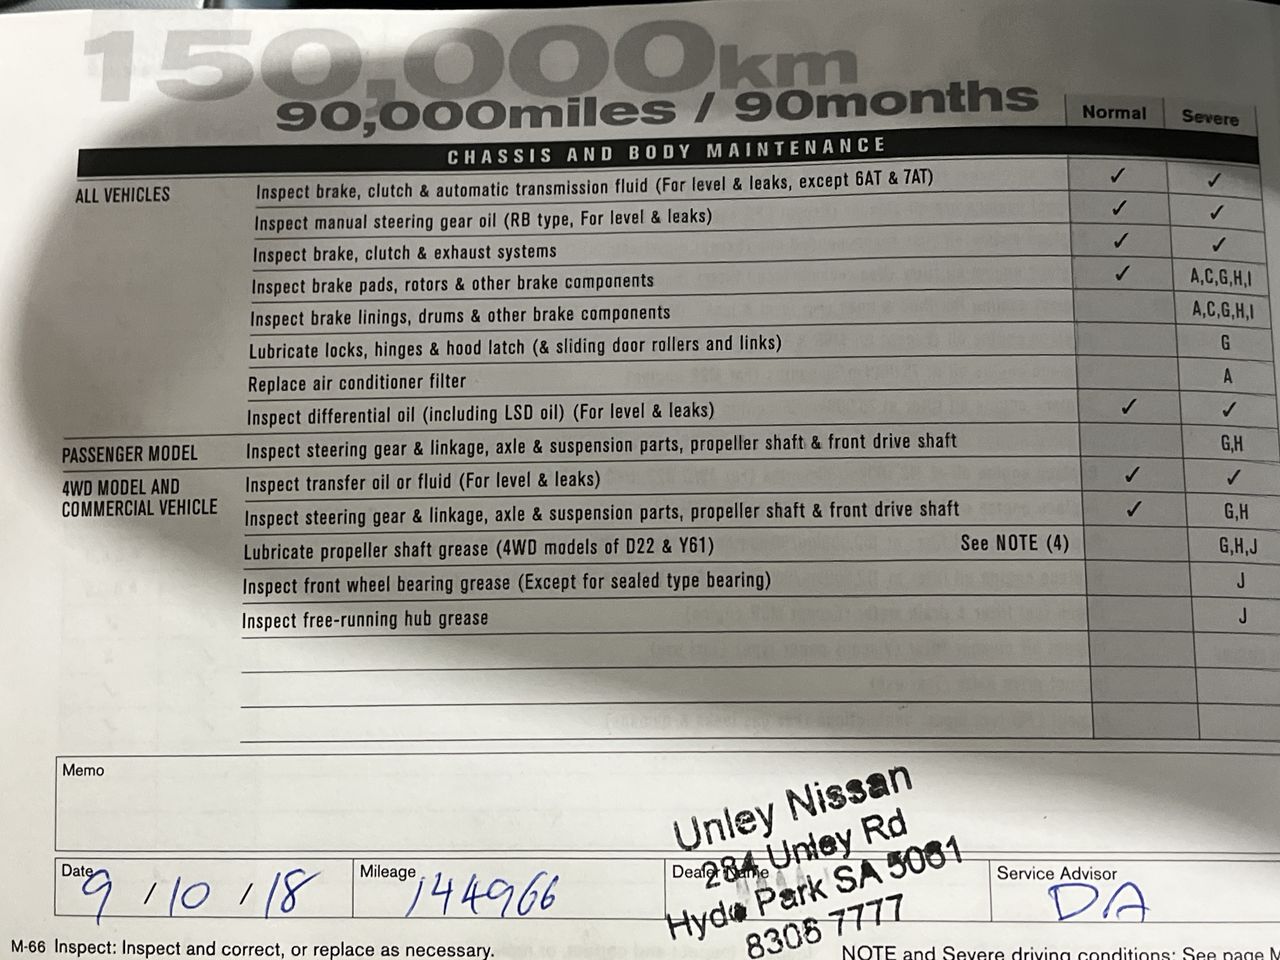 150,000km
90,000miles / 90months
Normal Severe
CHASSIS AND BODY MAINTENANCE
ALL VEHICLES Inspect brake, clutch & automatic transmission fluid (For level & leaks, except 6AT & 7AT) ✓ ✓
Inspect manual steering gear oil (RB type, For level & leaks) ✓ ✓
Inspect brake, clutch & exhaust systems ✓ ✓
Inspect brake pads, rotors & other brake components ✓ A,C,G,H,I
Inspect brake linings, drums & other brake components A,C,G,H,I
Lubricate locks, hinges & hood latch (& sliding door rollers and links) G
Replace air conditioner filter A
Inspect differential oil (including LSD oil) (For level & leaks) ✓ ✓
PASSENGER MODEL Inspect steering gear & linkage, axle & suspension parts, propeller shaft & front drive shaft G,H
4WD MODEL AND
COMMERCIAL VEHICLE Inspect transfer oil or fluid (For level & leaks) ✓ ✓
Inspect steering gear & linkage, axle & suspension parts, propeller shaft & front drive shaft ✓ G,H
Lubricate propeller shaft grease (4WD models of D22 & Y61) See NOTE (4) G,H,J
Inspect front wheel bearing grease (Except for sealed type bearing) J
Inspect free-running hub grease J
Memo
Unley Nissan
284 Unley Rd
Hyde Park SA 5061
8306 7777
Date 9/10/18
Mileage 144966
Dealer Name
Service Advisor DA
M-66 Inspect: Inspect and correct, or replace as necessary.
NOTE and Severe driving conditions: See page M